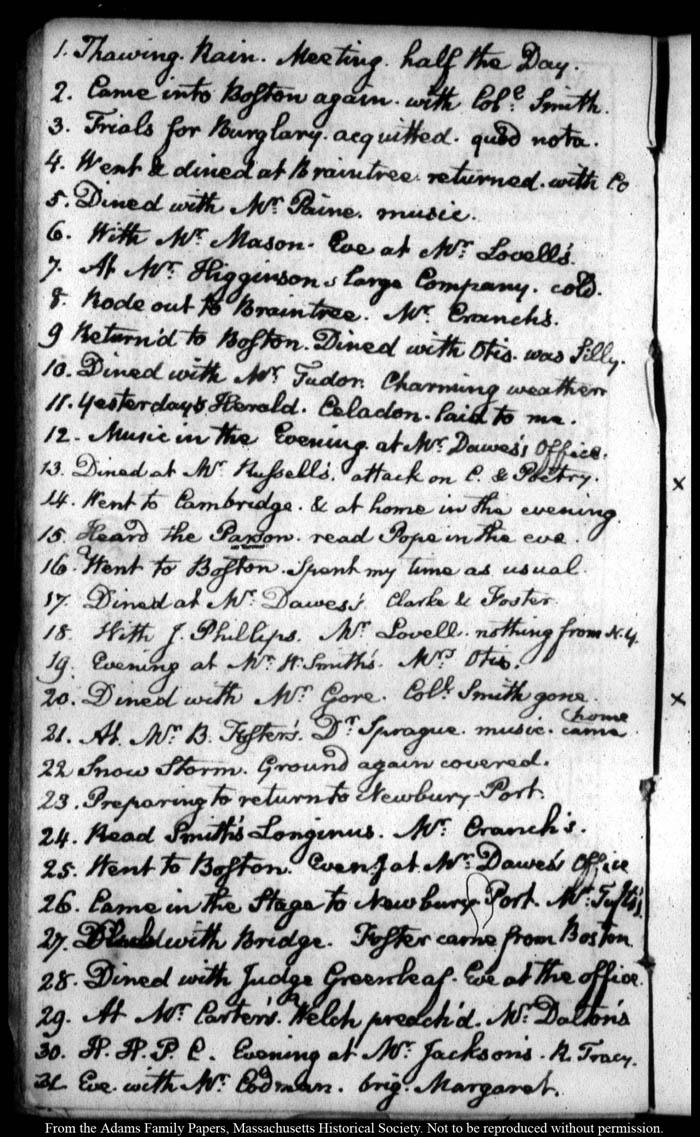 1. Thawing. Rain. Meeting. half the Day.
2. Came into Boston again. with Colo. Smith.
3. Trials for Burglary. acquitted. quod nota.
4. Went & dined at Braintree. returned. with Co
5. Dined with Mr. Paine. music.
6. With Mr. Mason. Eve at Mr. Lovell's.
7. At Mr. Higginson's large Company. cold.
8. Rode out to Braintree. Mr. Cranch's.
9 Return'd to Boston. Dined with Otis. was silly.
10. Dined with Mr. Tudor. Charming weather
11. Yesterday's Herald. Celadon. laid to me.
12. Music in the Evening. at Mr. Dawes's Office.
13. Dined at Mr. Russell's. attack on C. & Poetry.
14. Went to Cambridge. & at home in the evening
15. Heard the Parson. read Pope in the eve.
16. Went to Boston. Spent my time as usual
17. Dined at Mr. Dawes's. Clarke & Foster
18. With J. Phillips. Mr. Lovell. nothing from N.Y.
19. Evening at Mr. W. Smith's. Mrs. Otis.
20. Dined with Mr. Gore. Colo. Smith gone.
21. At Mr. B. Foster's. Dr. Sprague. music. came home
22 Snow Storm. Ground again covered.
23. Preparing to return to Newbury-Port.
24. Read Smith's Longinus. Mr. Cranch's.
25. Went to Boston. Eveng at Mr. Dawes's Office
26. Came in the Stage to Newbury-Port. Mr. Tufts's
27. with Bridge. Foster came from Boston
28. Dined with Judge Greenleaf. Eve at the office.
29. At Mr. Carter's. Welch preach'd. Mr. Dalton's
30. H. H. P. C. Evening at Mr. Jackson's. R. Tracy.
31. Eve. with Mr. Codman. brig. Margaret.
From the Adams Family Papers, Massachusetts Historical Society. Not to be reproduced without permission.